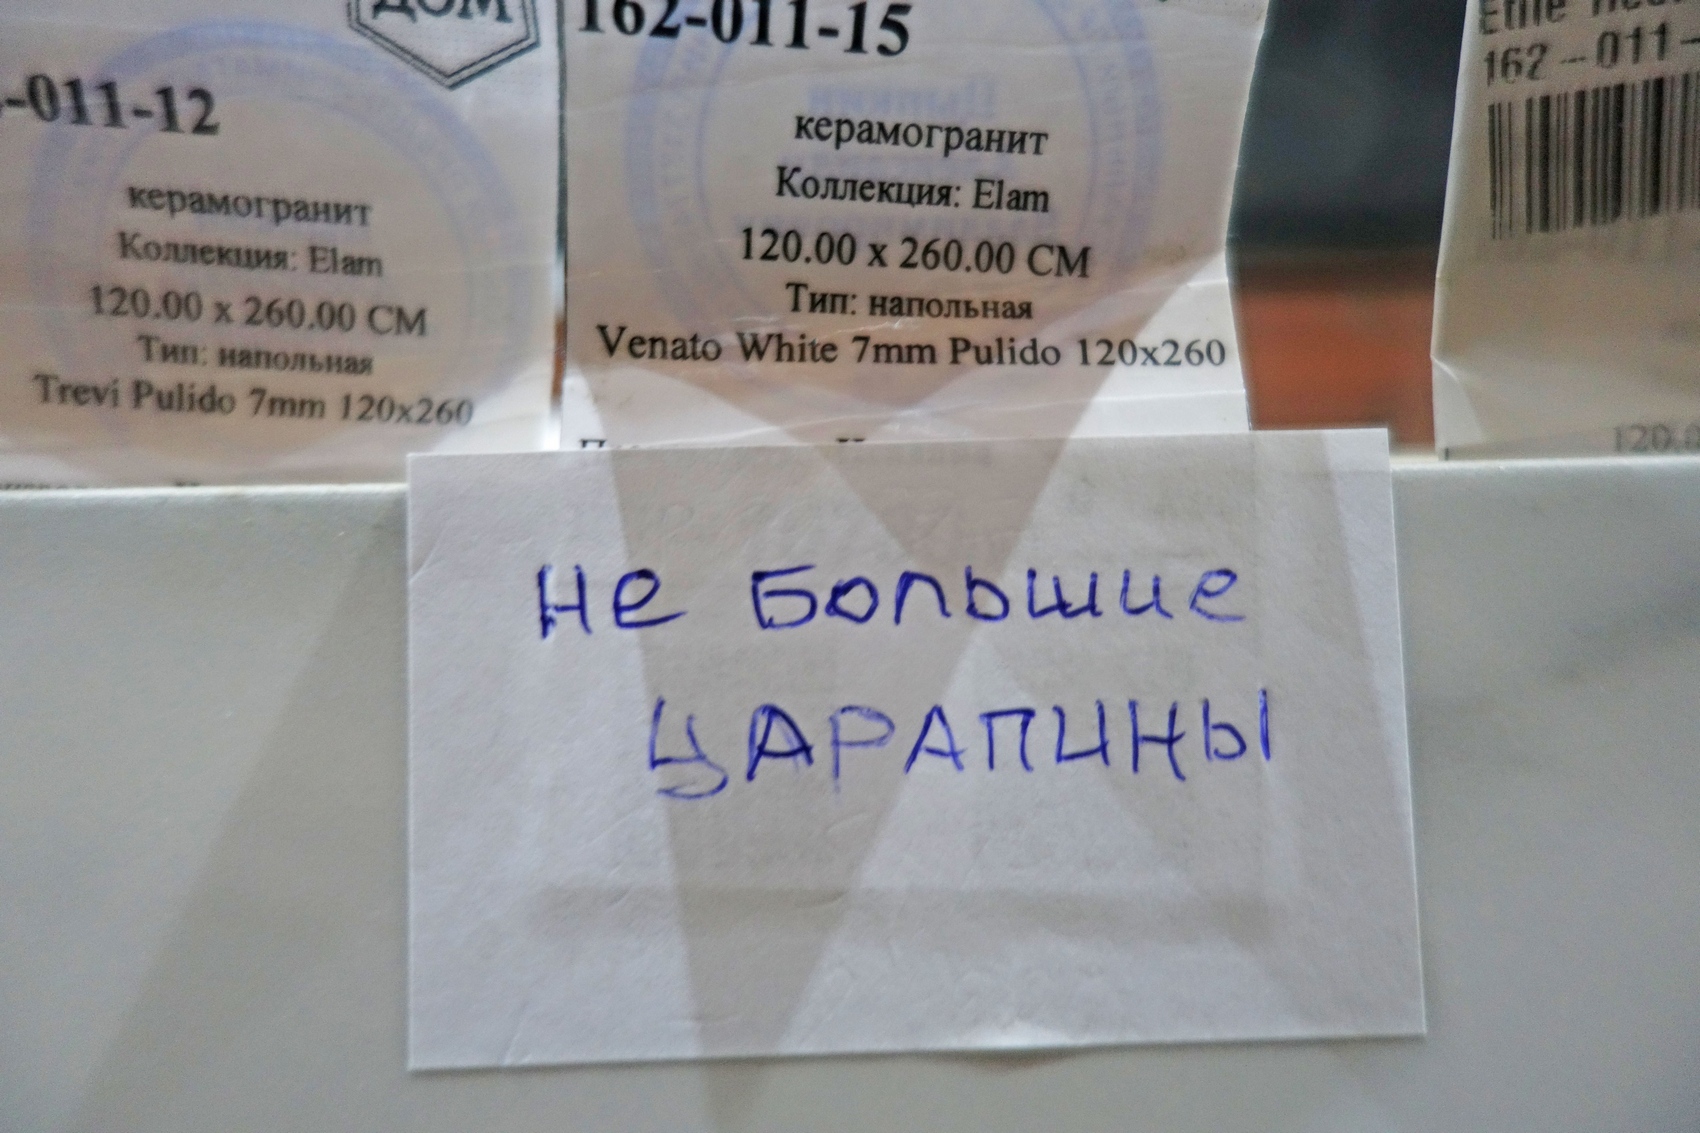 ДОМ
-011-12
керамогранит
Коллекция: Elam
120.00 x 260.00 СМ
Тип: напольная
Trevi Pulido 7mm 120x260
162-011-15
керамогранит
Коллекция: Elam
120.00 x 260.00 СМ
Тип: напольная
Venato White 7mm Pulido 120x260
162-011-
120.0
Не Большие
ЦАРАПИНЫ